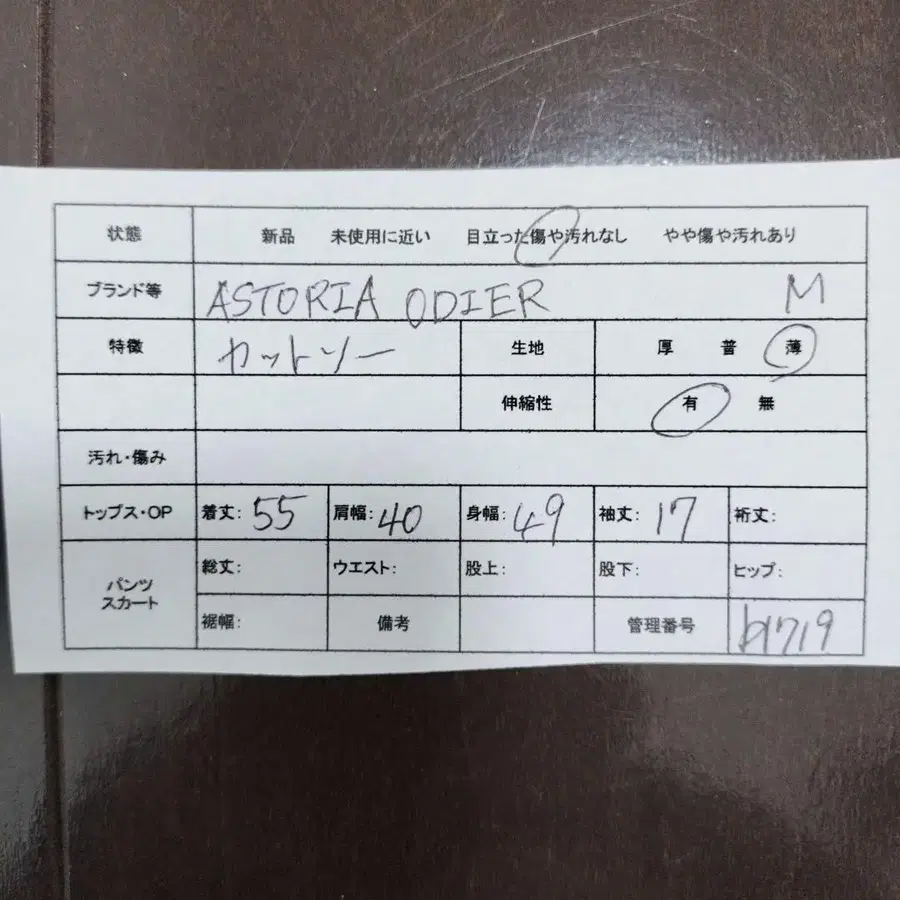 状態 新品 未使用に近い 目立った傷や汚れなし やや傷や汚れあり
ブランド等 ASTORIA ODIER M
特徴 カットソー 生地 厚 普 薄
伸縮性 有 無
汚れ・傷み
トップス・OP 着丈: 55 肩幅: 40 身幅: 49 袖丈: 17 裄丈:
パンツ スカート
総丈: ウエスト: 股上: 股下: ヒップ:
裾幅: 備考 管理番号 b1719